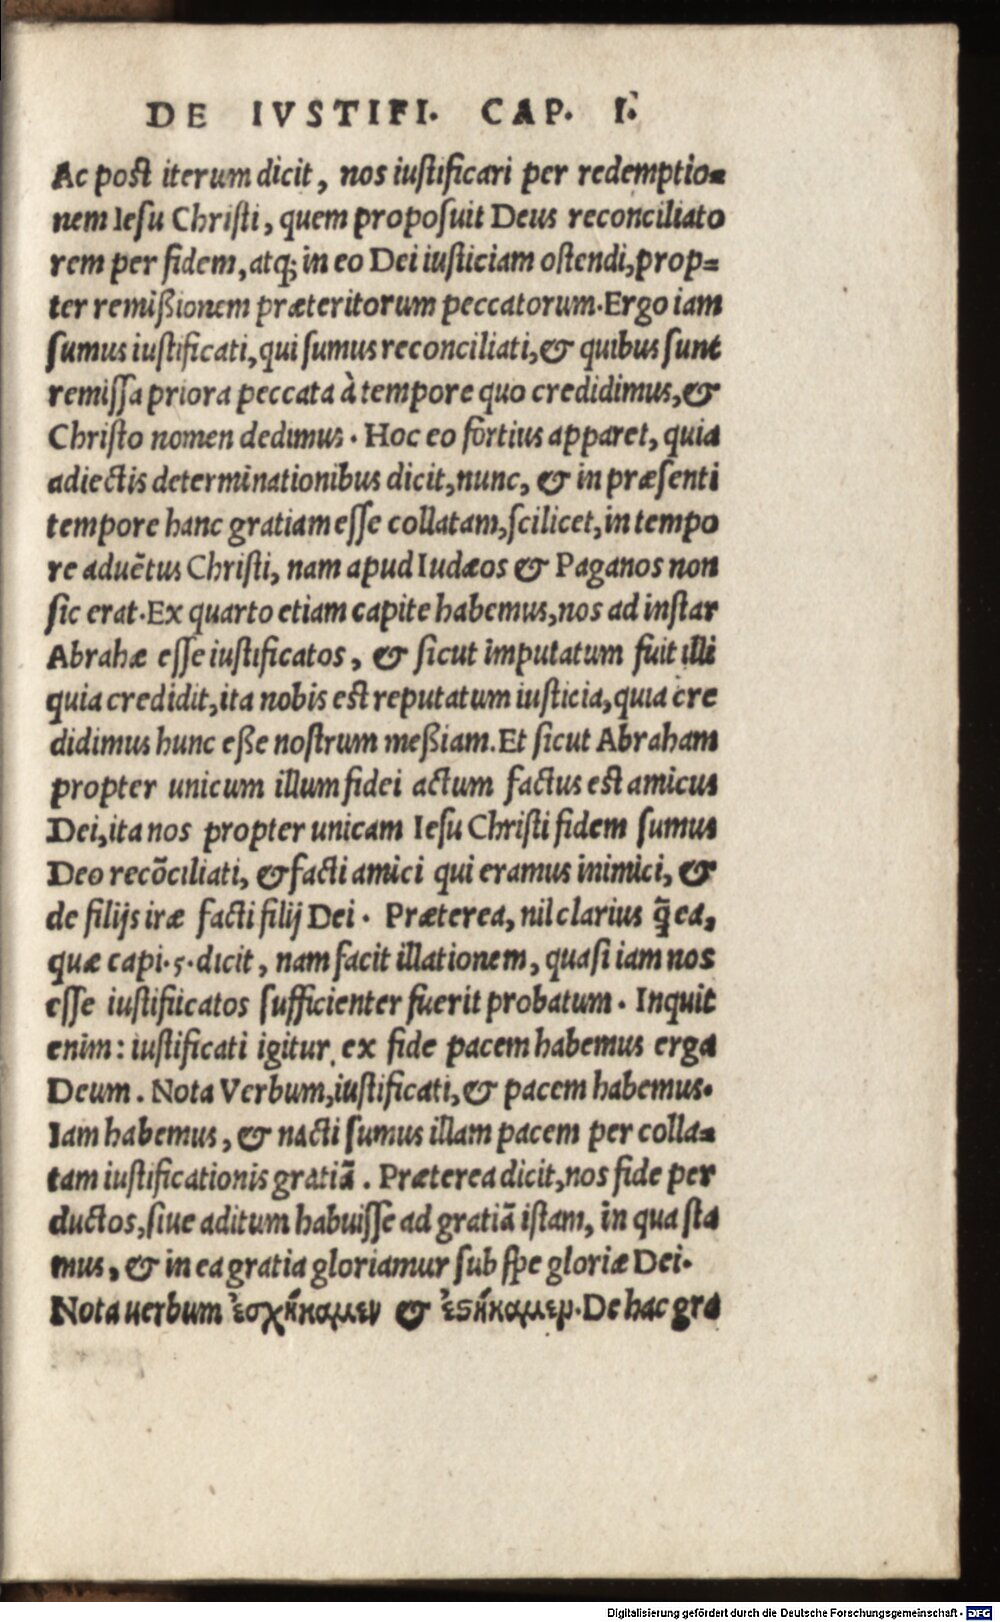 DE IVSTIFI. CAP. I.
Ac post iterum dicit, nos iustificari per redemptio-
nem Iesu Christi, quem proposuit Deus reconciliato
rem per fidem, atq; in eo Dei iusticiam ostendi, prop-
ter remißionem præteritorum peccatorum. Ergo iam
sumus iustificati, qui sumus reconciliati, & quibus sunt
remissa priora peccata à tempore quo credidimus, &
Christo nomen dedimus. Hoc eo fortius apparet, quia
adiectis determinationibus dicit, nunc, & in præsenti
tempore hanc gratiam esse collatam, scilicet, in tempo
re aduẽtus Christi, nam apud Iudæos & Paganos non
sic erat. Ex quarto etiam capite habemus, nos ad instar
Abrahæ esse iustificatos, & sicut imputatum fuit illi
quia credidit, ita nobis est reputatum iusticia, quia cre
didimus hunc eße nostrum meßiam. Et sicut Abraham
propter unicum illum fidei actum factus est amicus
Dei, ita nos propter unicam Iesu Christi fidem sumus
Deo recõciliati, & facti amici qui eramus inimici, &
de filijs iræ facti filij Dei. Præterea, nil clarius q̃ ea,
quæ capi. 5. dicit, nam facit illationem, quasi iam nos
esse iustifiicatos sufficienter fuerit probatum. Inquit
enim: iustificati igitur ex fide pacem habemus erga
Deum. Nota Verbum, iustificati, & pacem habemus.
Iam habemus, & nacti sumus illam pacem per colla-
tam iustificationis gratiã. Præterea dicit, nos fide per
ductos, siue aditum habuisse ad gratiã istam, in qua sta
mus, & in ea gratia gloriamur sub spe gloriæ Dei.
Nota uerbum ἐσχήκαμεν & ἑϛήκαμεν. De hac gra
Digitalisierung gefördert durch die Deutsche Forschungsgemeinschaft - DFG